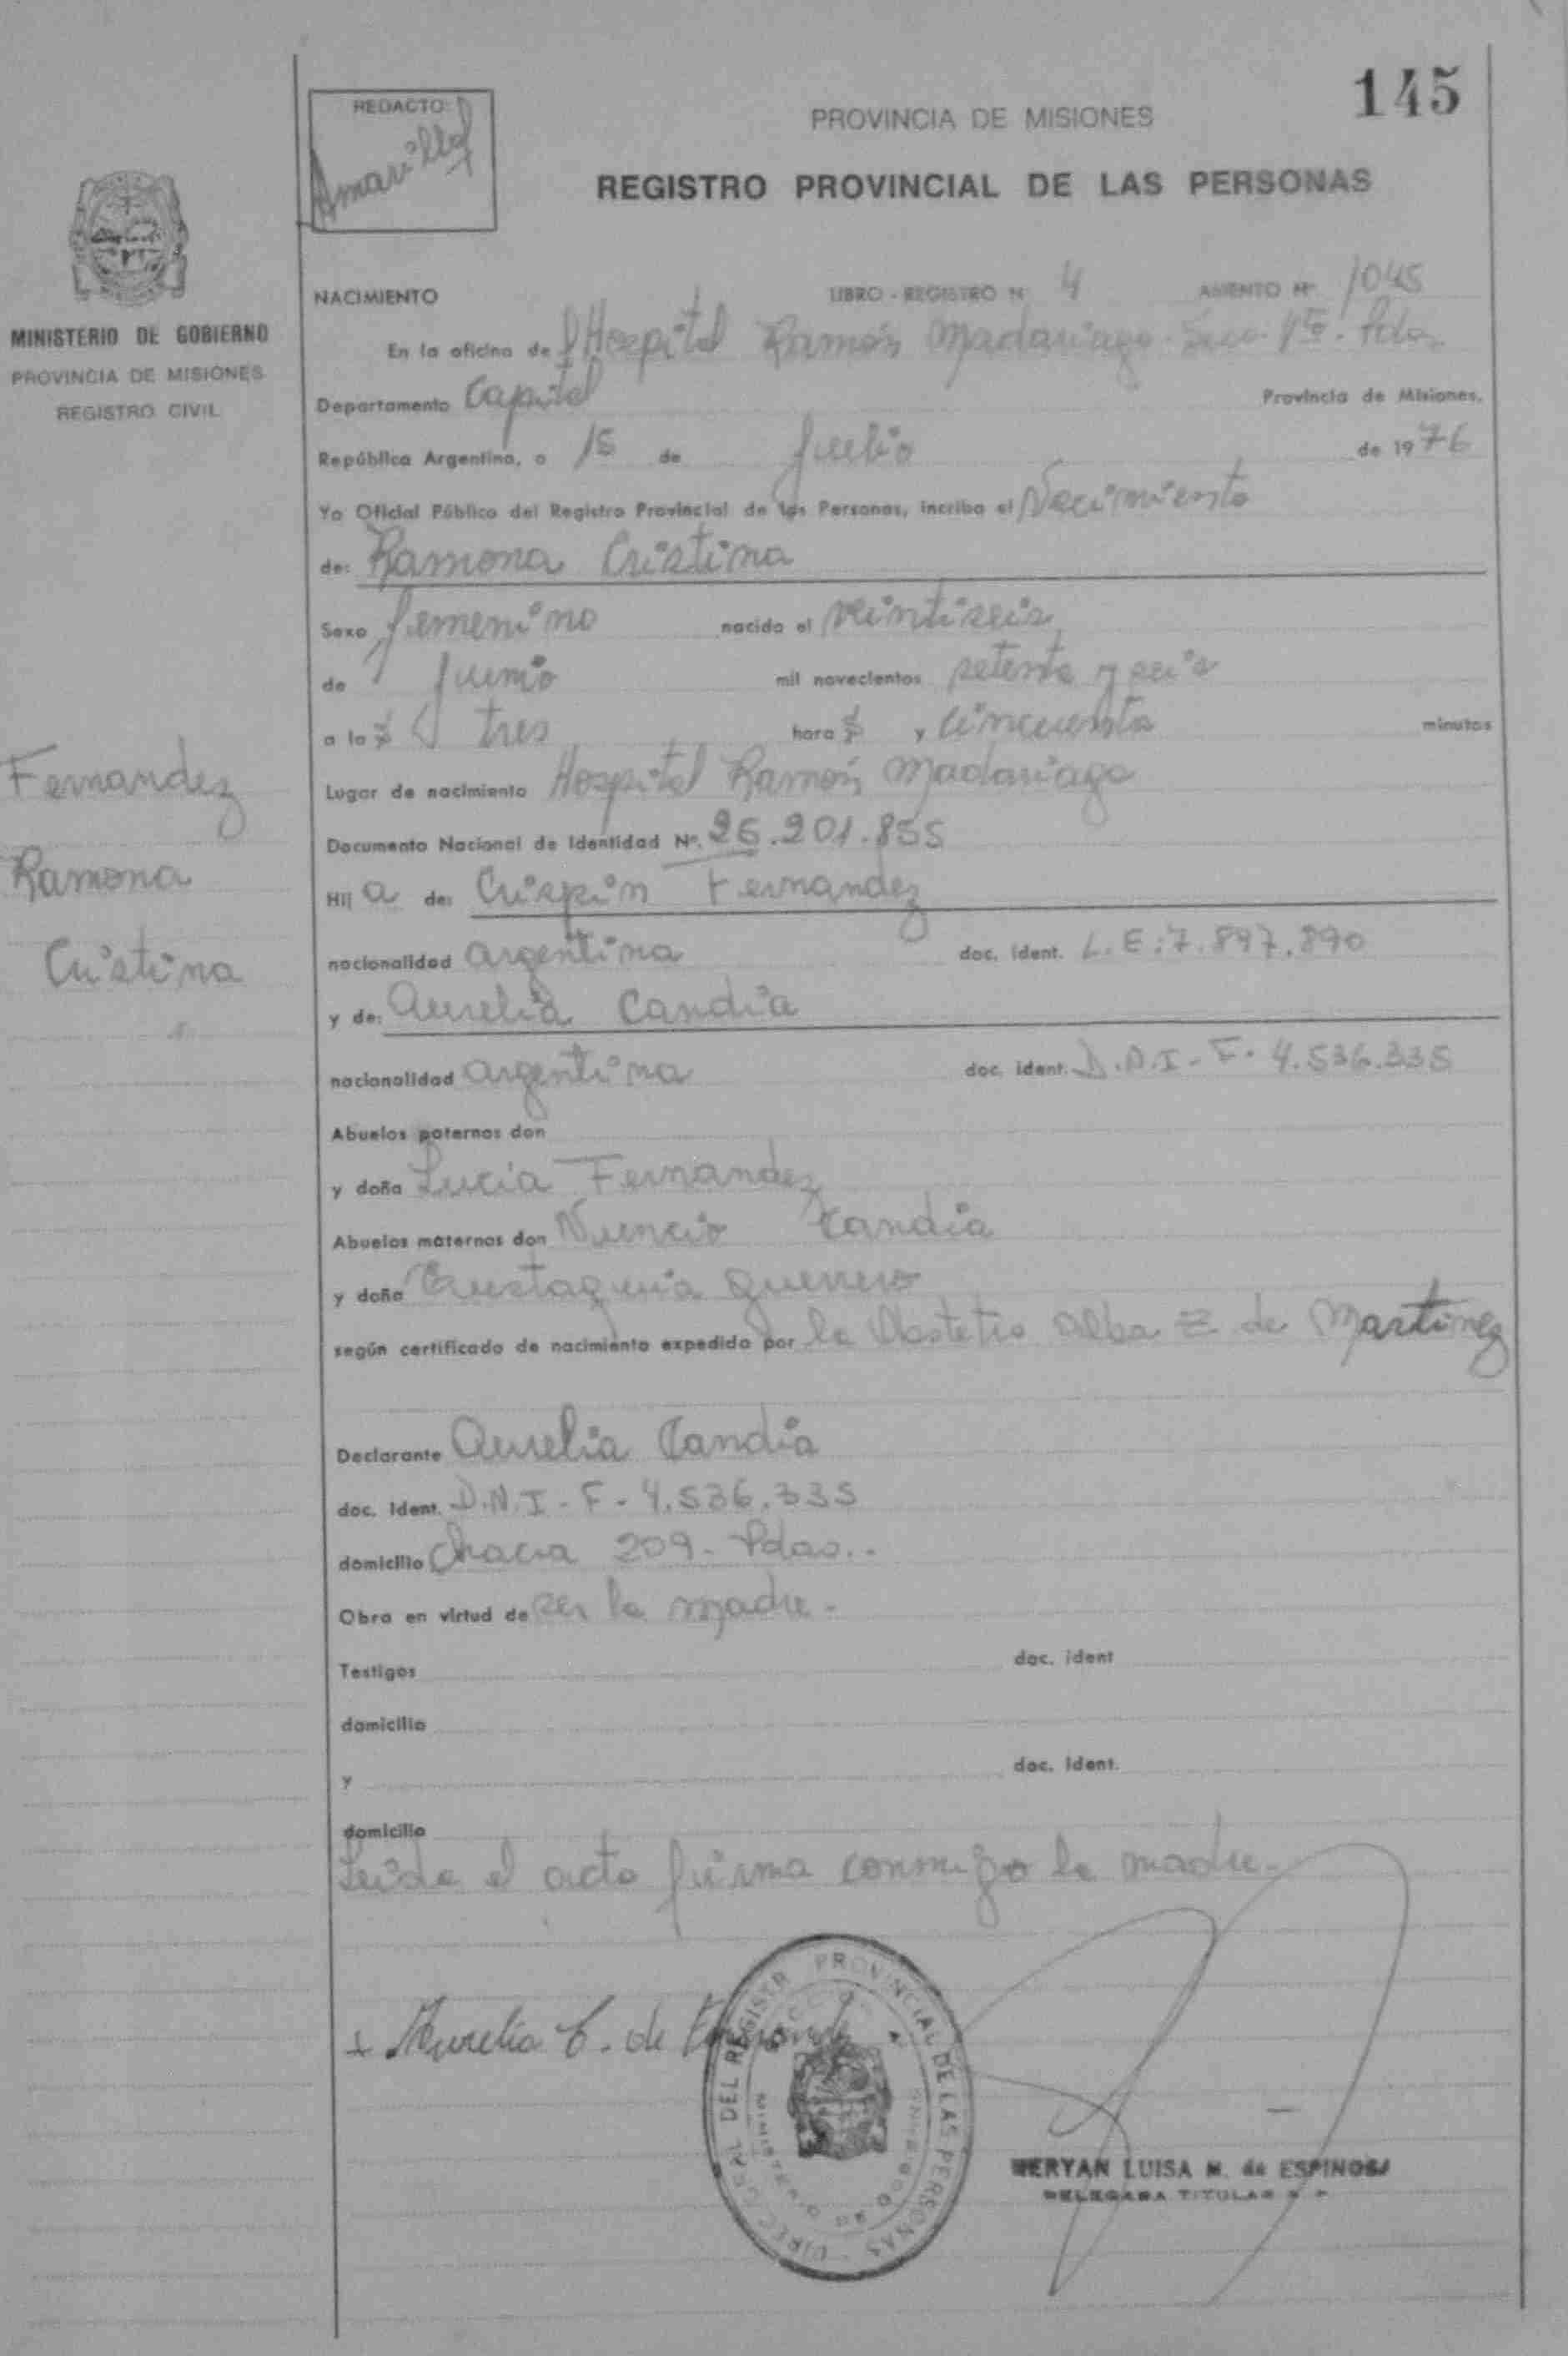 145
REDACTO:
PROVINCIA DE MISIONES
REGISTRO PROVINCIAL DE LAS PERSONAS
MINISTERIO DE GOBIERNO
PROVINCIA DE MISIONES
REGISTRO CIVIL
NACIMIENTO LIBRO - REGISTRO N° 4 ASIENTO N° 1045
En la oficina de Hospital Ramón Madariaga
Departamento Capital Provincia de Misiones,
República Argentina, a 15 de Julio de 1976
Yo Oficial Público del Registro Provincial de las Personas, incribo el Nacimiento
de: Ramona Cristina
Sexo femenino nacido el veintiseis
de Junio mil novecientos setenta y seis
a las tres hora y cincuenta minutos
Lugar de nacimiento Hospital Ramón Madariaga
Documento Nacional de Identidad N°. 26.201.855
Hij a de: Crispin Fernandez
nacionalidad argentina doc. ident. L.E:7.897.890
y de: Aurelia Candia
nacionalidad argentina doc. ident. D.N.I - F. 4.536.335
Abuelos paternos don
y doña Lucia Fernandez
Abuelos maternos don Nuncio Candia
y doña Eustaquia Guerrero
según certificado de nacimiento expedido por la Obstetra Alba Z de Martinez
Declarante Aurelia Candia
doc. Ident. D.N.I - F - 4.536.335
domicilio Chacra 209 - Pdas.-
Obra en virtud de ser la madre -
Testigos doc. ident
domicilio
y doc. ident.
domicilio
Leida el acta firma conmigo la madre -
Fernandez
Ramona
Cristina
Aurelia C. de Fernandez
DIREC. GRAL. DEL REGISTR. PROVINCIAL DE LAS PERSONAS
MERYAN LUISA M. de ESPINOSA
DELEGADA TITULAR